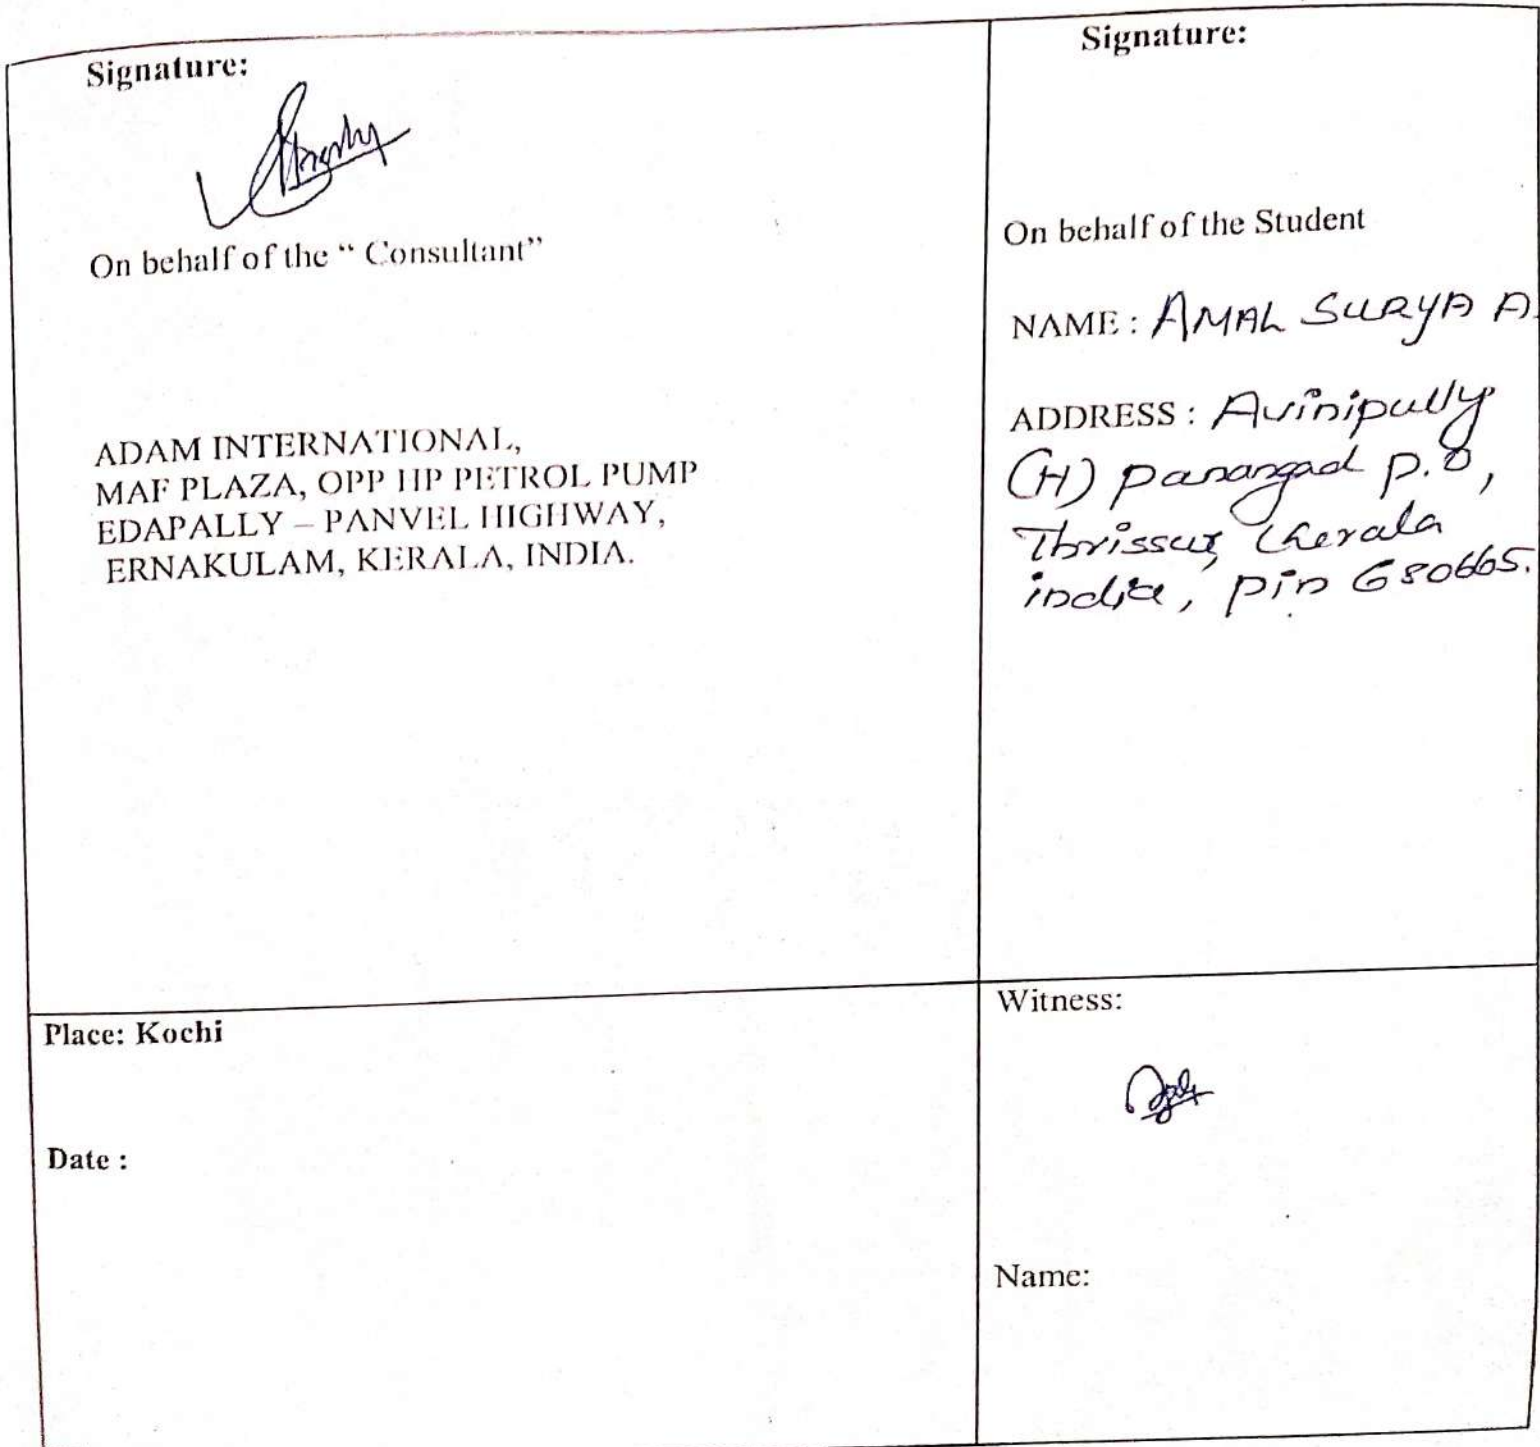 Signature:
On behalf of the “ Consultant”
ADAM INTERNATIONAL,
MAF PLAZA, OPP HP PETROL PUMP
EDAPALLY – PANVEL HIGHWAY,
ERNAKULAM, KERALA, INDIA.
Signature:
On behalf of the Student
NAME : AMAL SURYA A.
ADDRESS : Avinipully
(H) panangad p.o,
Thrissur, Kerala
india, pin 680665.
Place: Kochi
Date :
Witness:
Name: